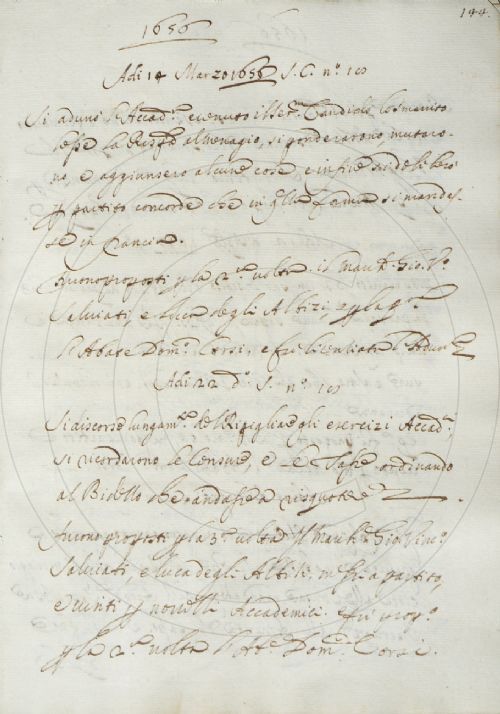 144.
1656
Adi 14 Marzo 1656 S. C. n.º 10
Si adunò l'Accad.ª, e venuto il Ser.
lesse la Risp.ª al Menagio, si ponderarono mutaro-
no e aggiunsero alcune cose, e infine si deliberò
p partito concorde che in qlla forma si mandas-
se in Francia.
Furono proposti p la 2.ª volta il March. Gio. V.º
Salviati, e Luca degli Albizi, e p la p.ª
l'Abate Dom.º Corsi, e fu licenziata l'Adun.ª
Adi 22 d.º S. n.º 10
Si discorse lungam.te del Ripigliare gli esercizi Accad.ci
si ricordarono le Censure, e le Tasse ordinando
al Bidello che andasse a risquotere
Furono proposti p la 3.ª volta il March. Gio. Vinc.º
Salviati, e Luca degli Albizi, messi a partito,
e vinti p novelli Accademici e fu prop.º
p la 2.ª volta l'Ab.e Dom.º Corsi.